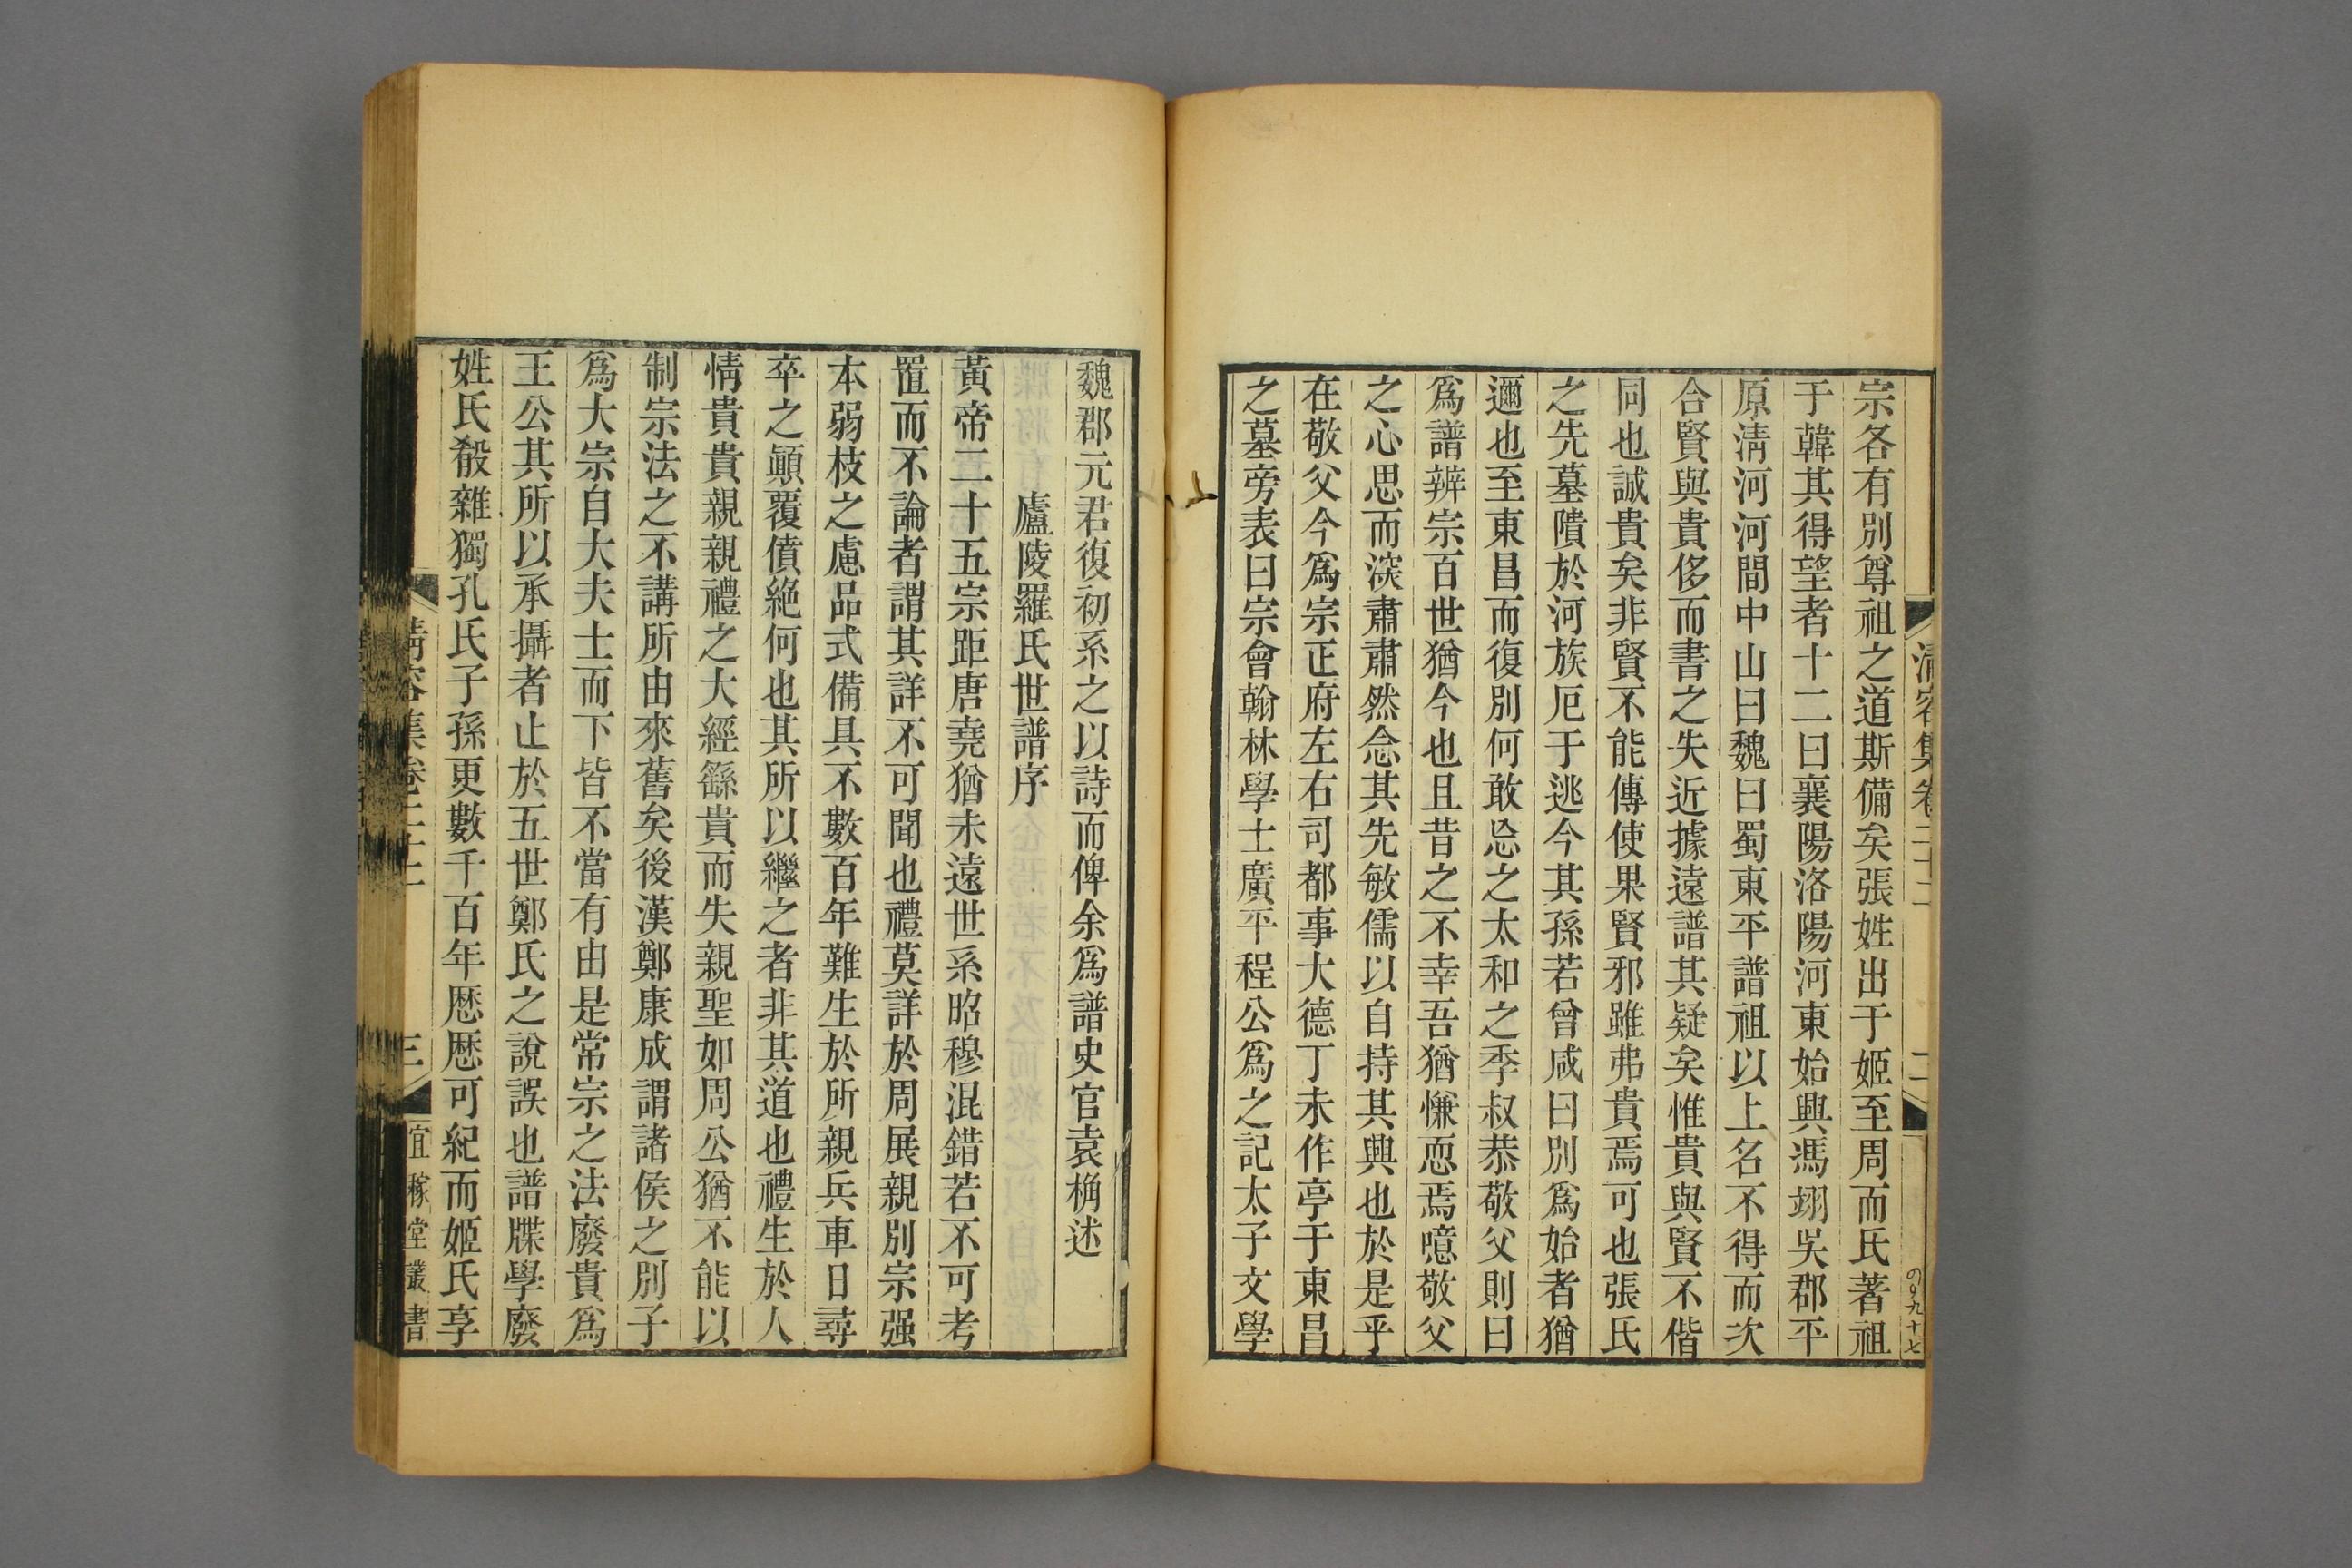 宗各有別尊祖之道斯備矣張姓出于姬至周而氏著祖
于韓其得望者十二曰襄陽洛陽河東始興馮翊吳郡平
原清河河間中山曰魏曰蜀東平譜祖以上名不得而次
合賢與貴侈而書之失近據遠譜其疑矣惟貴與賢不偕
同也誠貴矣非賢不能傳使果賢邪雖弗貴焉可也張氏
之先墓隤於河族厄于逃今其孫若曾咸曰別爲始者猶
邇也至東昌而復別何敢忘之太和之季叔恭敬父則曰
爲譜辨宗百世猶今也且昔之不幸吾猶慊恧焉噫敬父
之心思而深肅肅然念其先敏儒以自持其興也於是乎
在敬父今爲宗正府左右司都事大德丁未作亭于東昌
之墓旁表曰宗會翰林學士廣平程公爲之記太子文學
魏郡元君復初系之以詩而俾余爲譜史官袁桷述
廬陵羅氏世譜序
黃帝二十五宗距唐堯猶未遠世系昭穆混錯若不可考
罝而不論者謂其詳不可聞也禮莫詳於周展親別宗强
本弱枝之慮品式備具不數百年難生於所親兵車日尋
卒之顚覆僨絕何也其所以繼之者非其道也禮生於人
情貴貴親親禮之大經繇貴而失親聖如周公猶不能以
制宗法之不講所由來舊矣後漢鄭康成謂諸侯之別子
爲大宗自大夫士而下皆不當有由是常宗之法廢貴爲
王公其所以承攝者止於五世鄭氏之說誤也譜牒學廢
姓氏殽雜獨孔氏子孫更數千百年厯厯可紀而姬氏享
清容集卷二十二
三
宜稼堂叢書